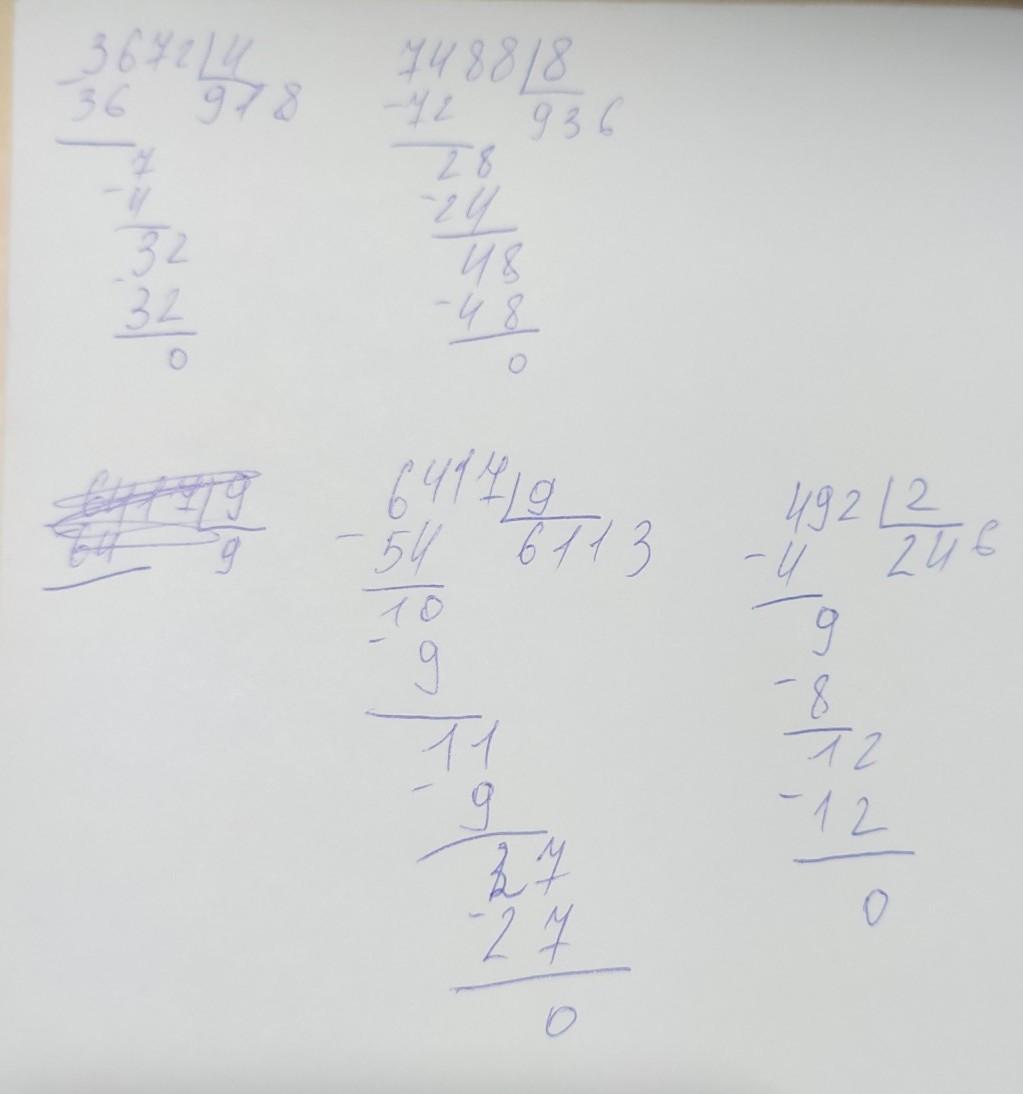 3672 4
- 36 918
7
- 4
32
- 32
0
7488 8
- 72 936
28
- 24
48
- 48
0
6417 9
64 9
6417 9
- 54 6113
10
- 9
11
- 9
27
- 27
0
492 2
- 4 246
9
- 8
12
- 12
0